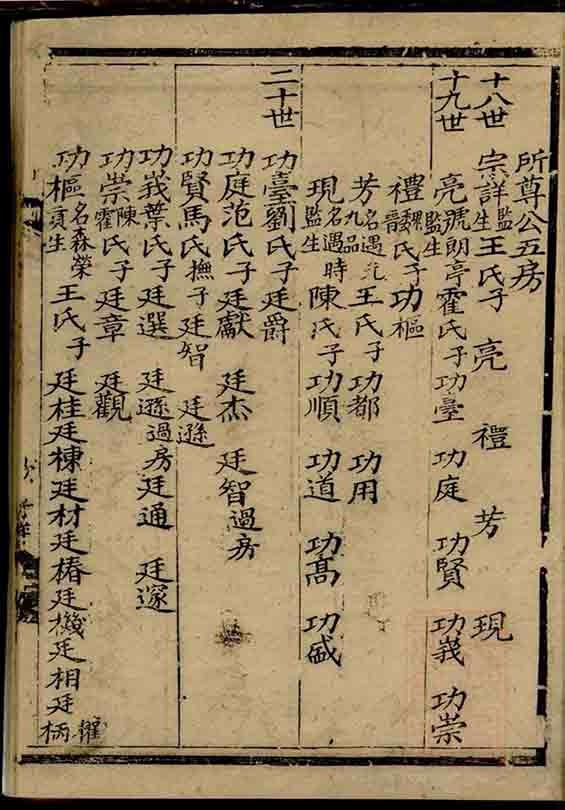 所尊公五房
十八世 宗詳監生王氏子 亮 禮 芳 現
十九世 亮號朗亭監生霍氏子功臺 功庭 功賢 功義 功崇
禮魏氏子功樞
芳名遇九品王氏子功都 功用
現名遇時監生陳氏子功順 功道 功高 功盛
二十世 功臺劉氏子廷爵
功庭范氏子廷獻 廷杰 廷智過房
功賢馬氏撫子廷智 廷遜
功義葉氏子廷選 廷遜過房廷通 廷邃
功崇陳霍氏子廷章 廷觀
功樞名森榮貢生王氏子 廷桂廷棟廷材廷椿廷機廷相廷柄